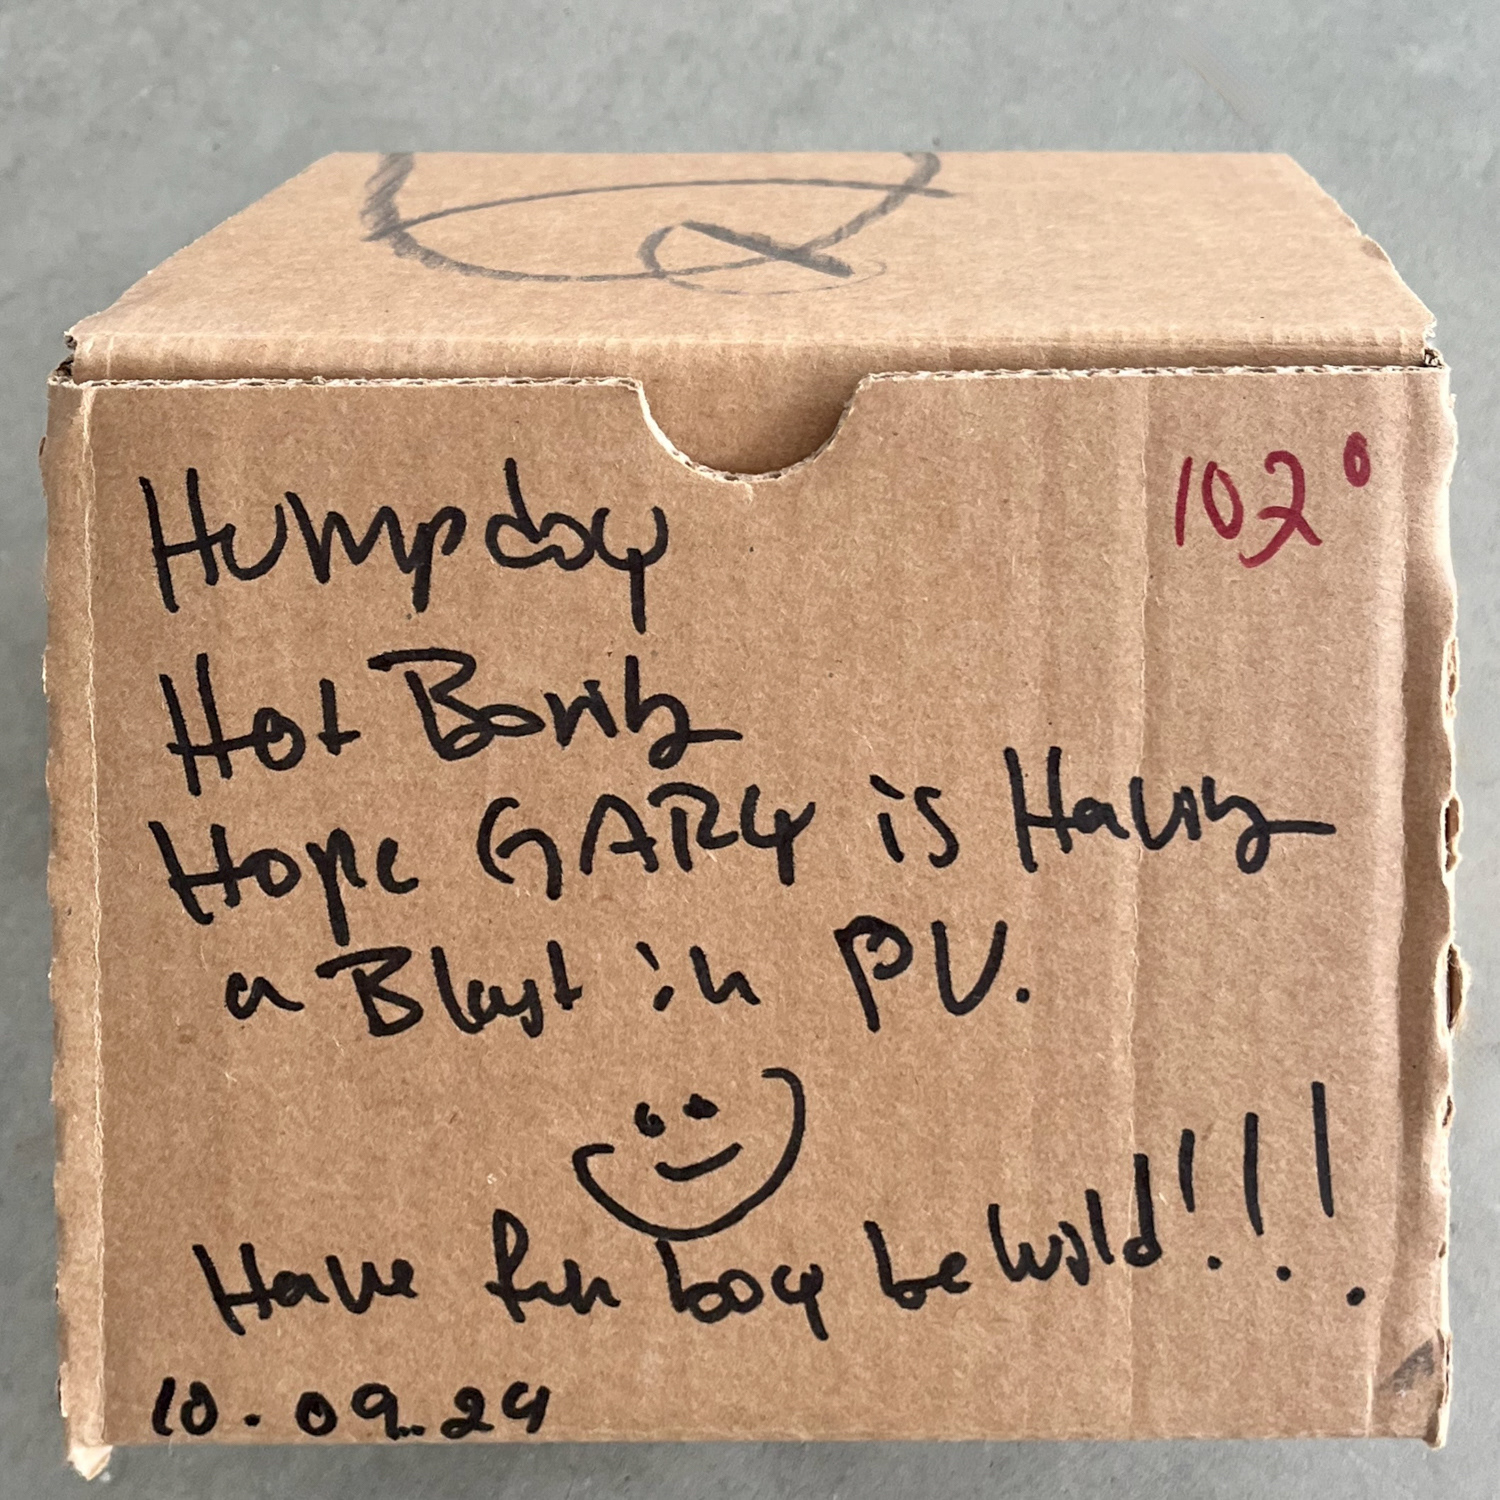 102°
Humpday
Hot Bomb
Hope GARY is Having
a Blast in PV.
Have fun boy be wild!!!
10.09.24